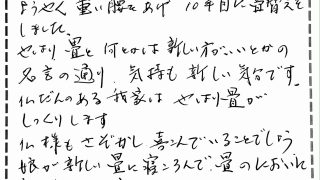 ようやく 重い腰をあげ 10年目に 畳替えを
しました。
やはり 畳と 何とかは 新しい方がいいとかの
名言の通り、気持も 新しい 気分です。
仏だんのある 我家は やはり畳が
しっくりします
仏様も さぞかし 喜こんでいることでしょう
娘が 新しい畳に寝ころんで、畳のにおいに